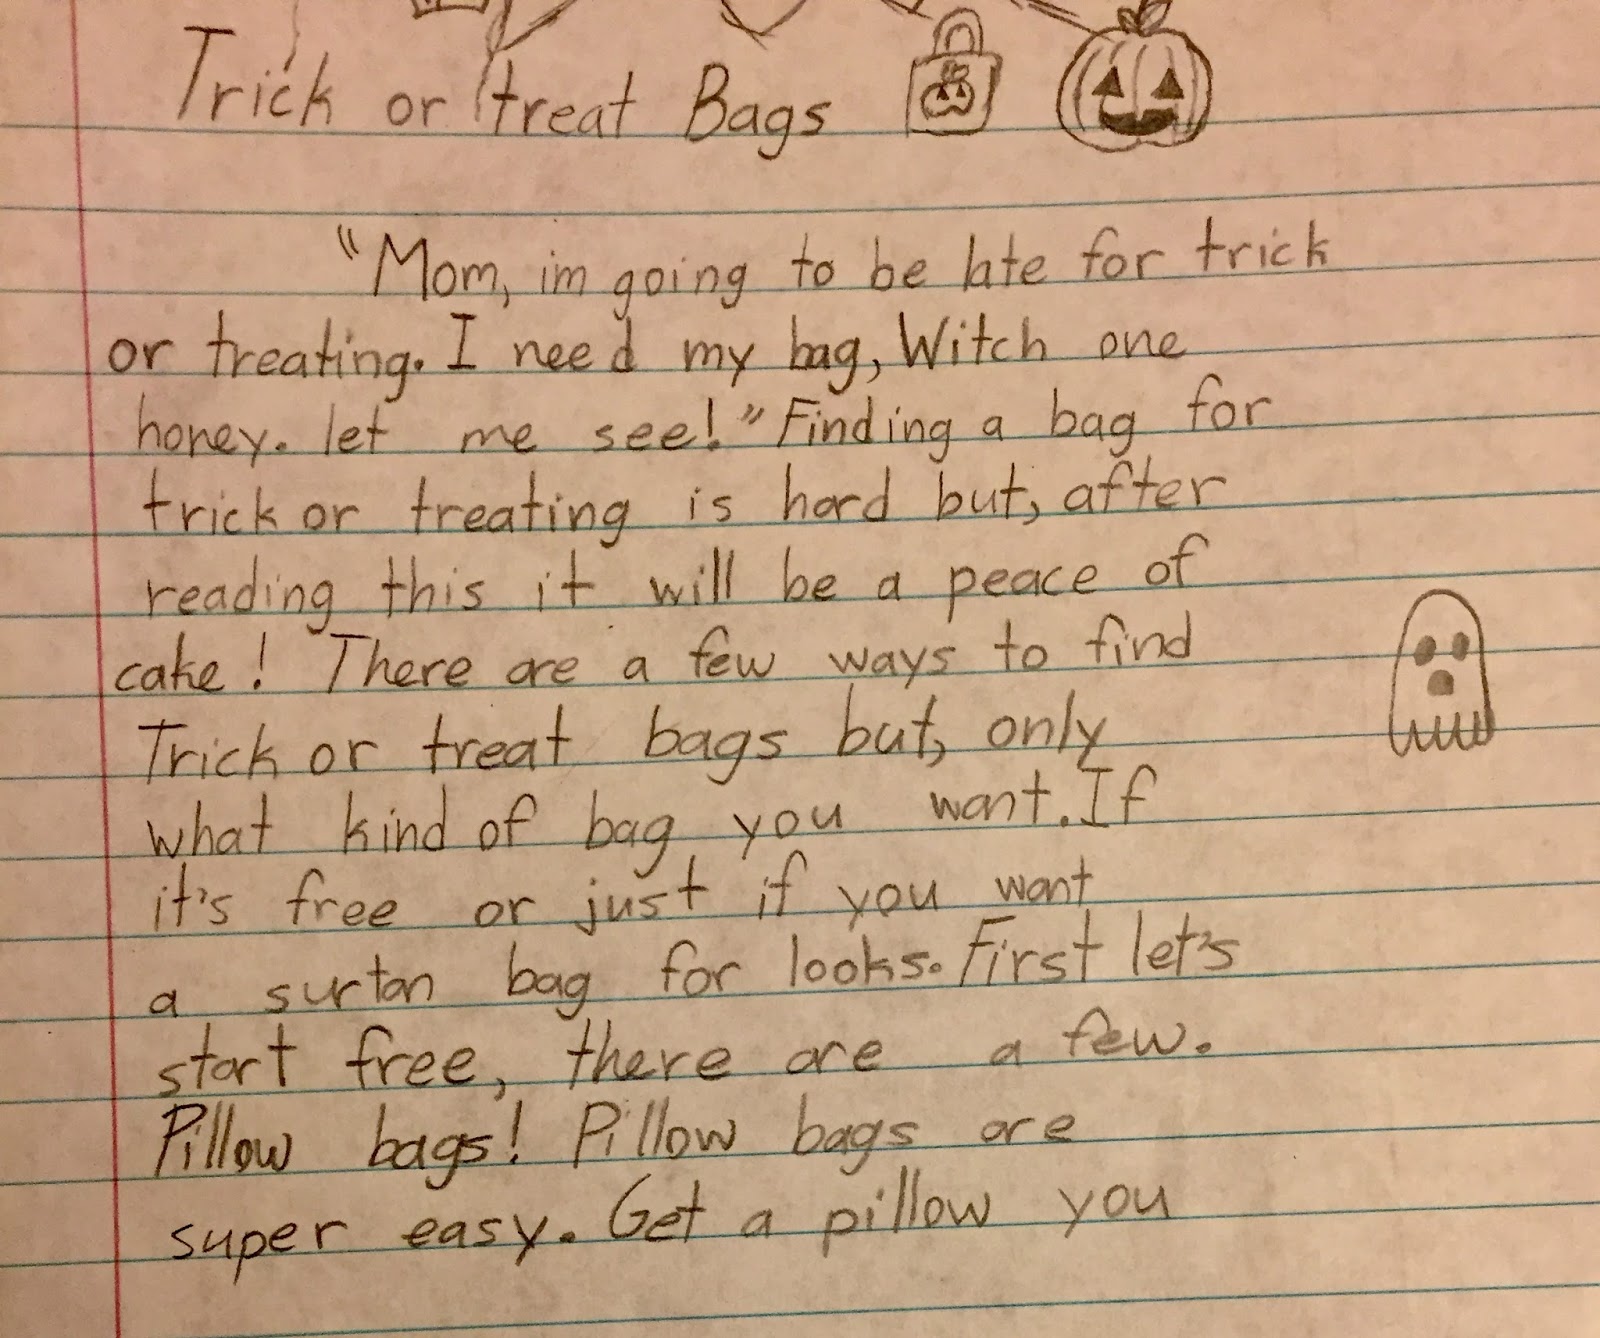 Trick or treat Bags
"Mom, im going to be late for trick
or treating. I need my bag, Witch one
honey. let me see!" Finding a bag for
trick or treating is hard but, after
reading this it will be a peace of
cake! There are a few ways to find
Trick or treat bags but, only
what kind of bag you want. If
it's free or just if you want
a surtan bag for looks. First let's
start free, there are a few.
Pillow bags! Pillow bags are
super easy. Get a pillow you